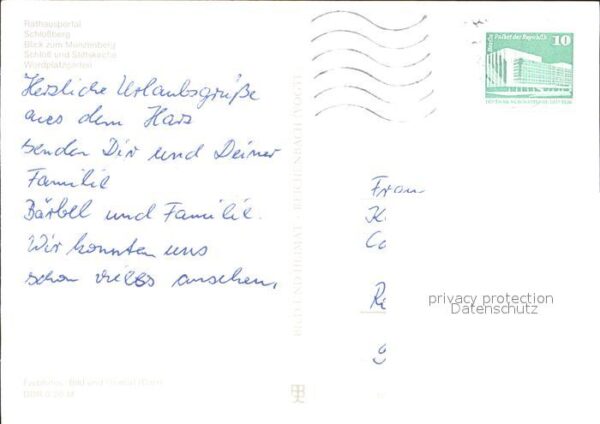 Rathausportal
Schloßberg
Blick zum Münzenberg
Schloß und Stiftskirche
Wordplatzgarten
Herzliche Urlaubsgrüße
aus dem Harz
senden Dir und Deiner
Familie
Bärbel und Familie.
Wir konnten uns
schon vieles ansehen.
BILD UND HEIMAT REICHENBACH (VOGTL)
Berlin Palast der Republik
10
Frau
K
Co
Re
privacy protection
Datenschutz
DDR 0,20 M